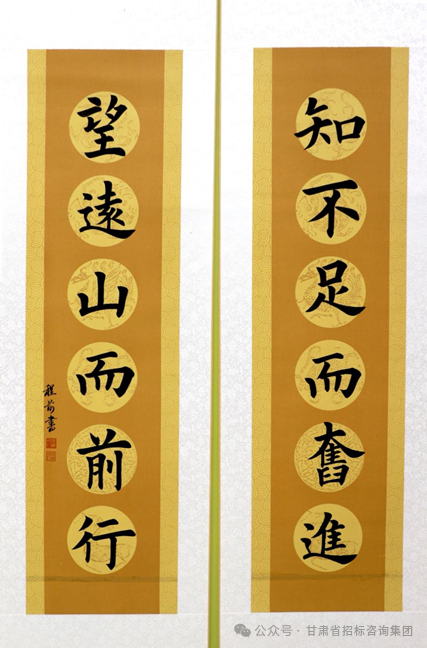 知不足而奮進
望遠山而前行
程前書
公众号·甘肃省招标咨询集团